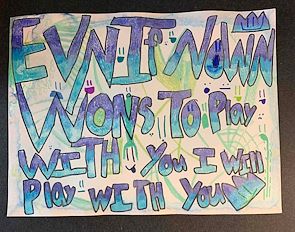 EVN If NOWN
WONS To Play
WITH You I Will
Play WITH You